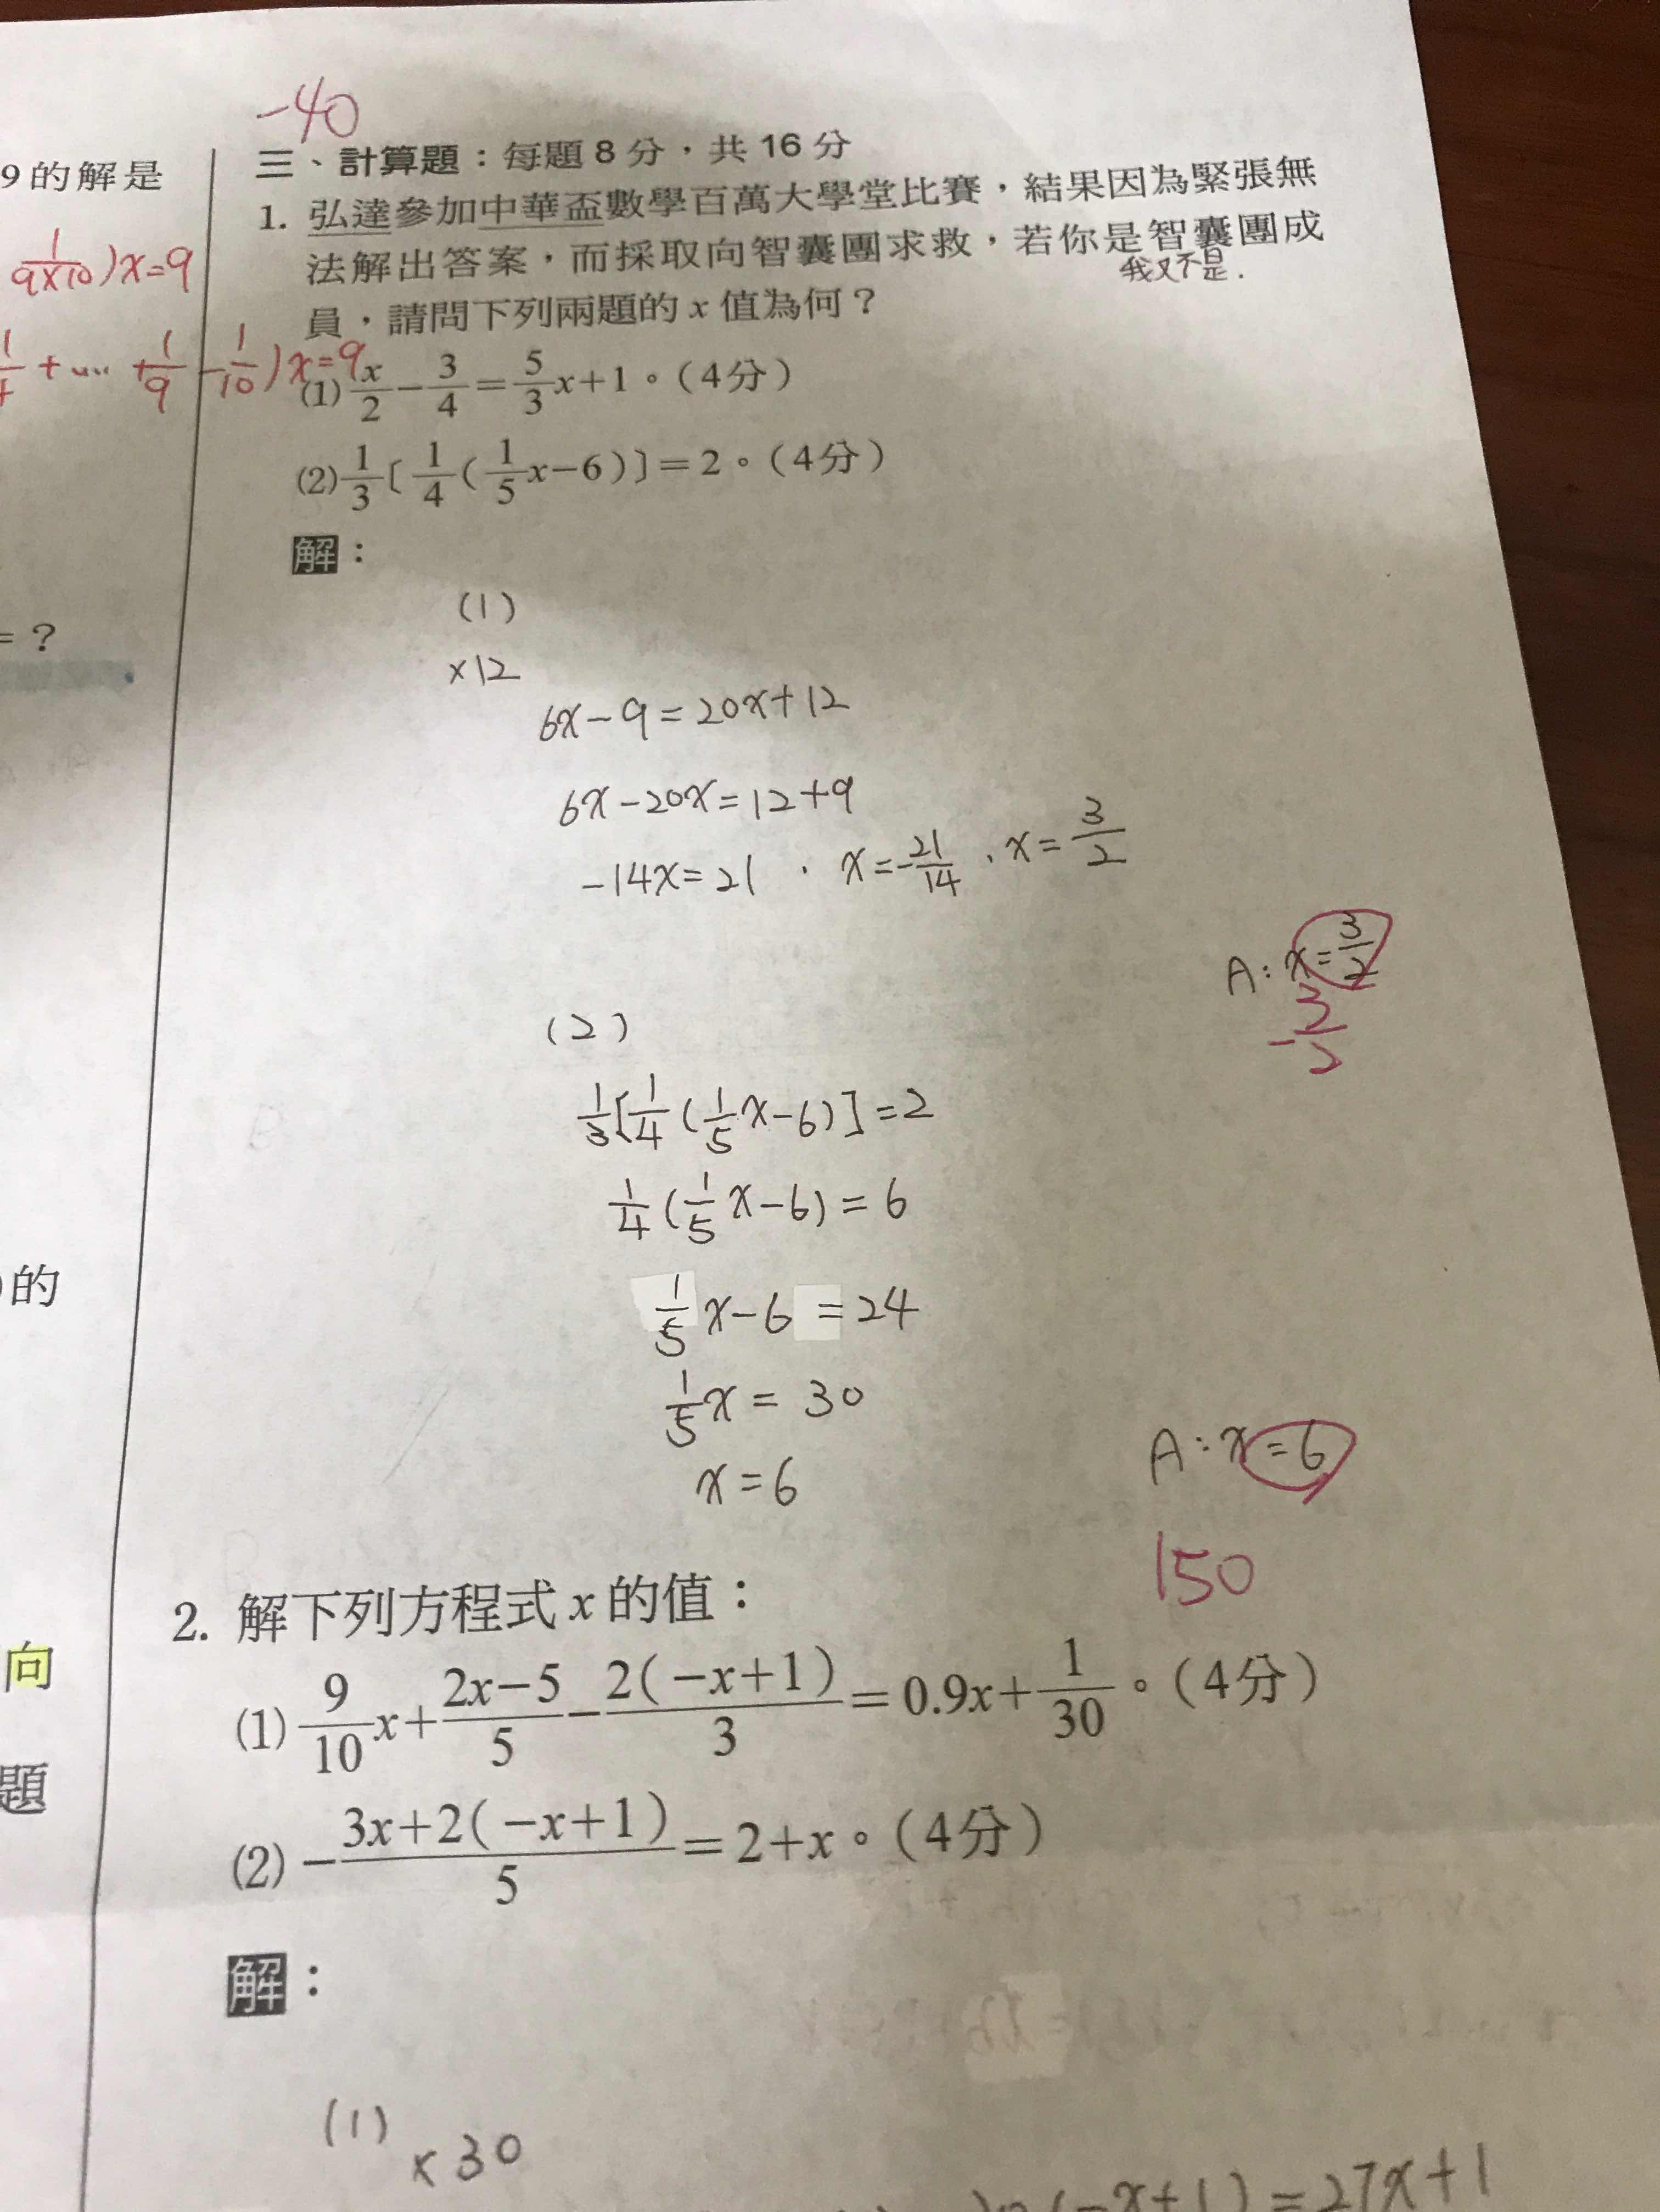 -40
9的解是
1/(9×10))x=9
1/4+……+1/9-1/10)x=9
=?
的
向
題
三、計算題：每題8分，共16分
1. 弘達參加中華盃數學百萬大學堂比賽，結果因為緊張無
法解出答案，而採取向智囊團求救，若你是智囊團成
我又不是.
員，請問下列兩題的x值為何？
(1) x/2-3/4=5/3x+1。（4分）
(2) 1/3〔1/4(1/5x-6)〕=2。（4分）
解：
(1)
×12
6x-9=20x+12
6x-20x=12+9
-14x=21 , x=-21/14 , x=3/2
A: x=3/2
-3/2
(2)
1/3[1/4(1/5x-6)]=2
1/4(1/5x-6)=6
1/5x-6=24
1/5x=30
x=6
A: x=6
150
2. 解下列方程式x的值：
(1) 9/10x+(2x-5)/5-2(-x+1)/3=0.9x+1/30。（4分）
(2) -(3x+2(-x+1))/5=2+x。（4分）
解：
(1)
×30
(-x+1)=27x+1